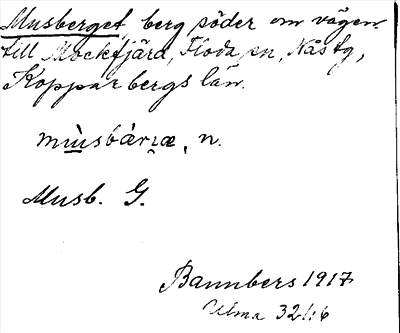 Musberget, berg söder om vägen
till Mockfjärd, Floda sn, Nås tg,
Kopparbergs län.
mùsbàrıæ, n.
Musb. G.
Bannbers 1917
Ulma 321:6